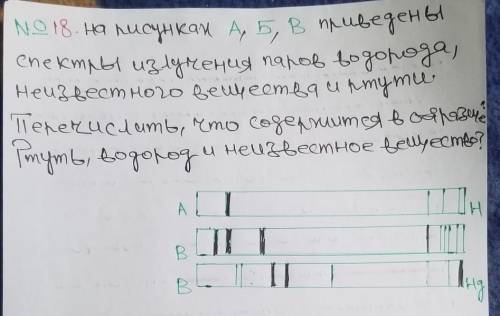 №18. на рисунках А, Б, В приведены
спектры излучения паров водорода,
неизвестного вещества и ртути.
Перечислить, что содержится в образце
Ртуть, водород и неизвестное вещество?
А Н
В
В Hg